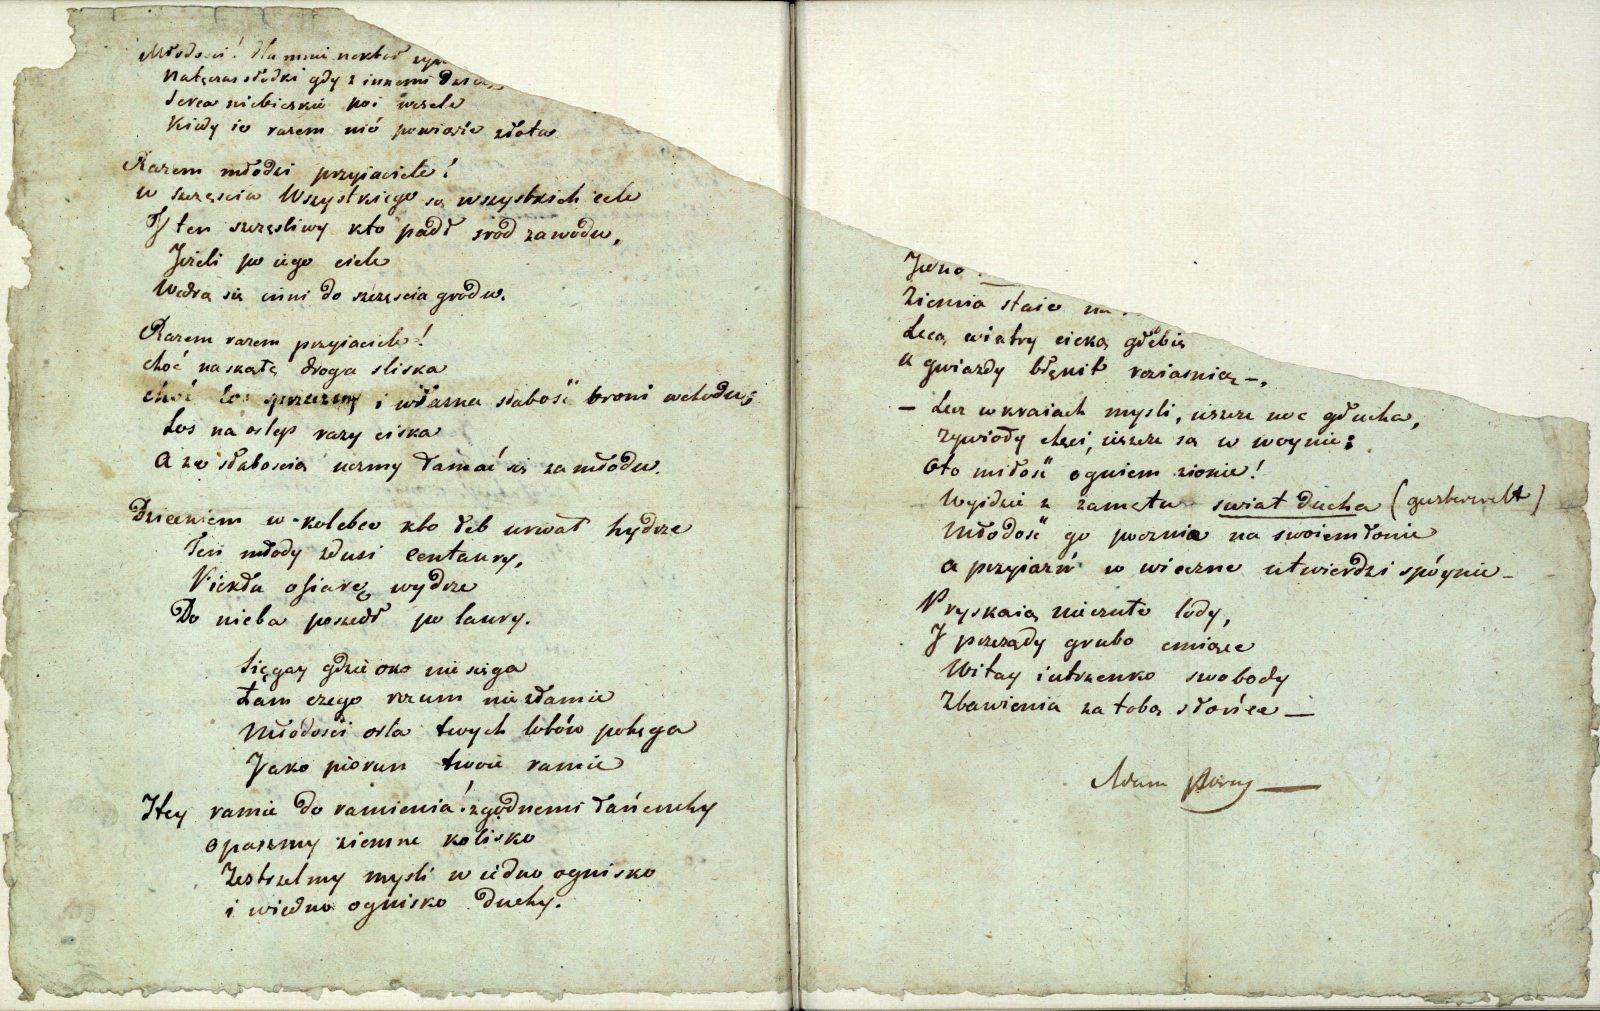 Młodości! dla mnie nektar
Natęczas słodki gdy z innemi
Serca niebieskie poi wesele
Kiedy ie razem nić powiąże złota
Razem młodzi przyiaciele!
w szczęściu Wszystkiego są wszystkich cele
Y ten szczęsliwy kto padł sród zawodu,
Jeżeli po iego ciele
Wedrą się inni do szczęścia grodu.
Razem razem przyiaciele!
choć na skałę droga sliska
choć los przeczny i własna słabość broni wchodu;
Los na oslep razy ciska
A ze słabością uczmy łamać się za młodu.
Dzieckiem w kolebce kto łeb urwał hydrze
Ten młody zdusi centaury,
Piekłu ofiarę wydrze
Do nieba poszedł po laury.
Sięgay gdzie oko nie sięga
Łam czego rozum nie złamie
Młodości orla twych lotów potęga
Jako piorun twoie ramie
Hey ramie do ramienia! zgodnemi łańcuchy
opaszmy ziemne kolisko
Zestrzelmy mysli w iedno ognisko
i w iedno ognisko duchy.
Jedno
Ziemia staie na
Lecą wiatry cieką głębię
a gwiazdy błęnit roziasnią –.
– Lecz w kraiach mysli, ieszcze noc głucha,
Zywioły chęci, ieszcze są w woynie;
Oto miłość ogniem zionie!
Wyidzie z zamętu swiat ducha (geisterwelt)
Młodość go pocznie na swoiem łonie
a przyiaźń w wieczne utwierdzi spóynie –
Pryskaią nieczułe lody,
J przeządy grubo cmiące
Witay iutrzenko swobody
Zbawienia za tobą słońce —
Adam